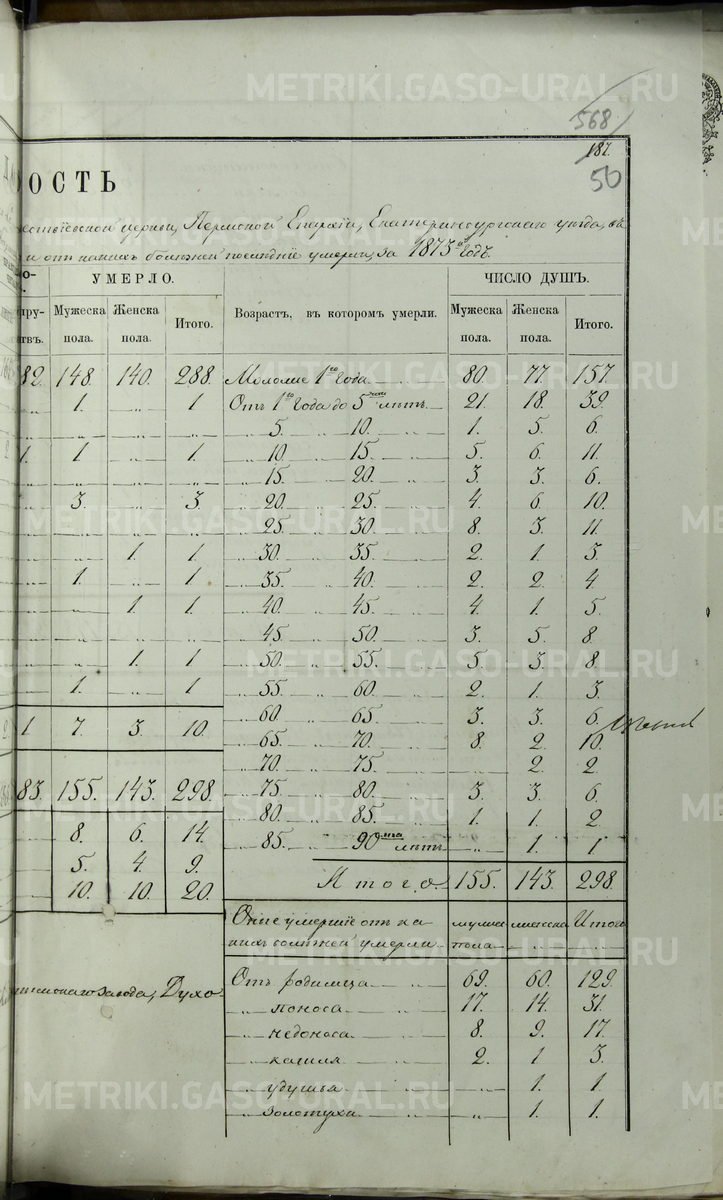 METRIKI.GASO-URAL.RU
568
187.
50
ОСТЬ
церкви, Пермской Епархіи, Екатеринбургскаго уѣзда, въ
и отъ какихъ болѣзней послѣдніе умерли, за 1875й годъ.
УМЕРЛО. ЧИСЛО ДУШЪ.
Мужеска пола. Женска пола. Итого. Возрастъ, въ которомъ умерли. Мужеска пола. Женска пола. Итого.
82. 148. 140. 288. Моложе 1го года 80. 77. 157.
1. „ 1 Отъ 1го года до 5ти лѣтъ 21. 18. 39.
5. „ 10. 1. 5. 6.
1. 1 „ 1. 10 „ 15. 5. 6. 11.
15 „ 20. 3. 3. 6.
3. „ 3. 20. „ 25. 4. 6. 10.
25. „ 30. 8. 3. 11.
1. 1. 30. „ 35. 2. 1. 3.
1. „ 1 35. „ 40. 2. 2. 4
1. 1. 40. „ 45. 4. 1. 5.
45. „ 50. 3. 5. 8.
1. 1 50. „ 55. 5. 3. 8.
1. „ 1 55. „ 60. 2. 1. 3.
60 „ 65. 3. 3. 6.
1 7. 3. 10. 65. „ 70. 8. 2. 10.
70. „ 75. „ 2. 2.
83. 155. 143. 298. 75. „ 80. 3. 3. 6.
80. „ 85. 1. 1. 2
8. 6. 14. 85. „ 90та лѣтъ „ 1. 1
5. 4. 9.
10. 10. 20. Итого. 155. 143. 298.
Оные умершіе отъ ка- мужес- женска Итого
кихъ болѣзней умерли пола
завода, Духо- Отъ родимца 69. 60. 129.
„ поноса 17. 14. 31.
„ недоноса 8. 9. 17.
„ кашля 2. 1 3.
„ удушья „ 1. 1
„ золотухи „ 1. 1.